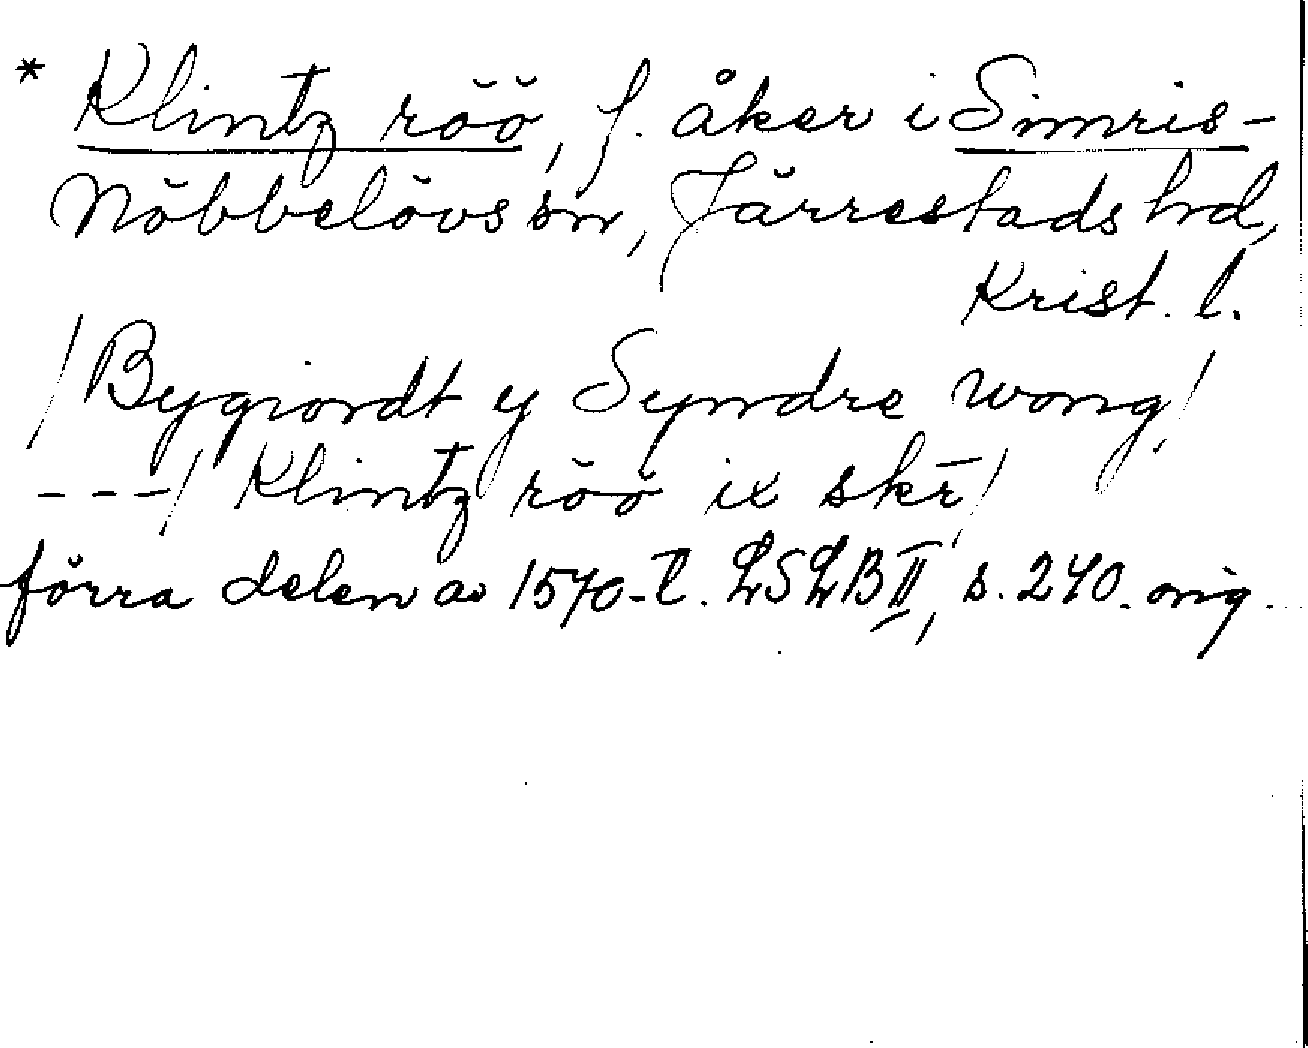 * Klintz röö, f. åker i Simris-
Nöbbelövs sn, Järrestads hrd,
Krist. l.
/Bygiordt y Syndre wong/
---/ Klintz röö ix skr̄/
förra delen av 1570-t. LSLB II, s. 240. orig.